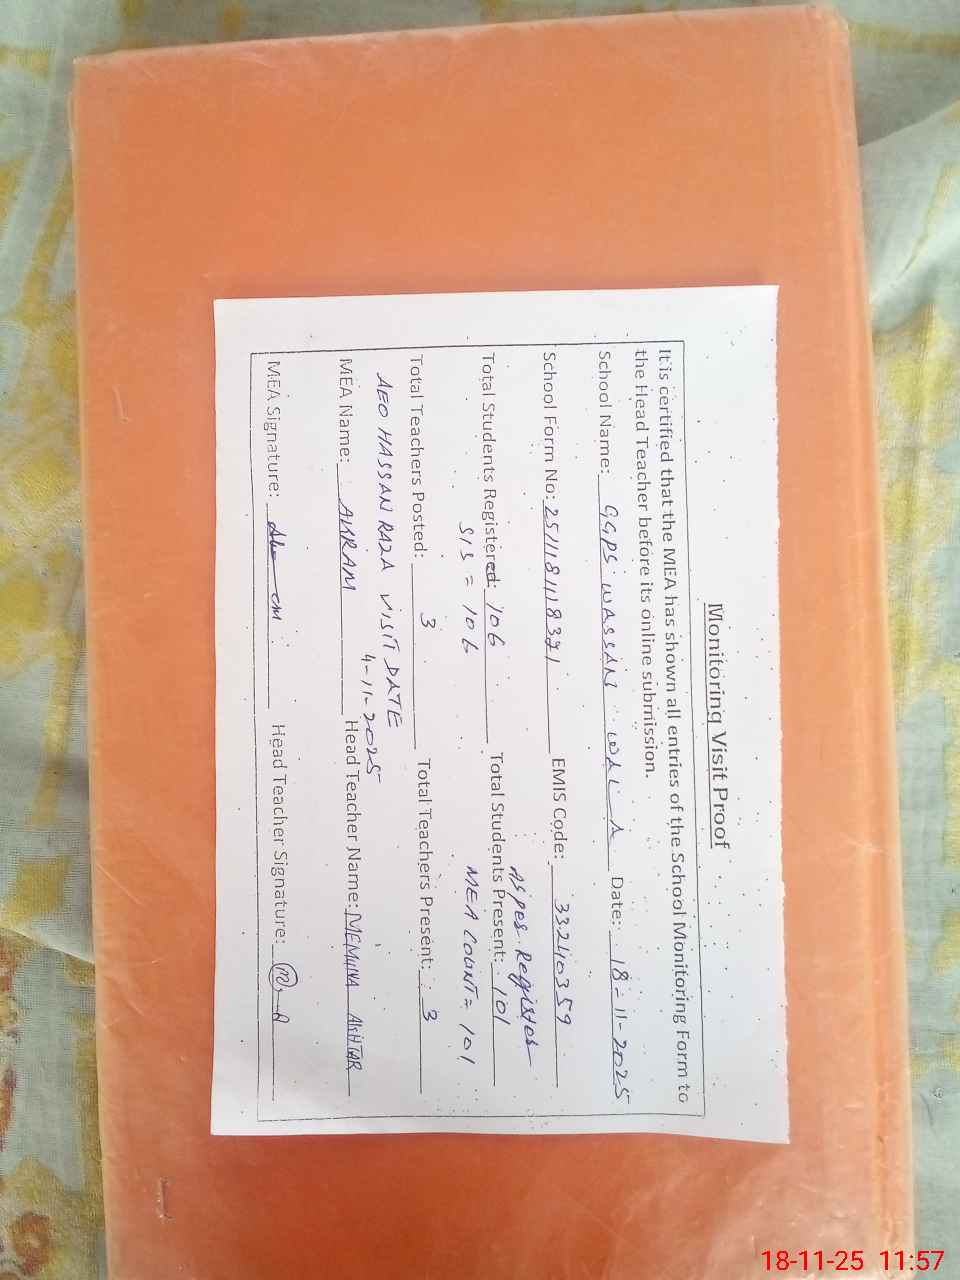 Monitoring Visit Proof
It is certified that the MEA has shown all entries of the School Monitoring Form to
the Head Teacher before its online submission.
School Name: GGPS WASSAN WALA Date: 18-11-2025
School Form No: EMIS Code: 33240359
As per Register
Total Students Registered: 106 Total Students Present: 101
SIS = 106 MEA COUNT = 101
Total Teachers Posted: 3 Total Teachers Present: 3
AEO HASSAN RAZA VISIT DATE
4-11-2025
MEA Name: AKRAM Head Teacher Name: MEMUNA AKHTAR
MEA Signature: Head Teacher Signature:
18-11-25 11:57